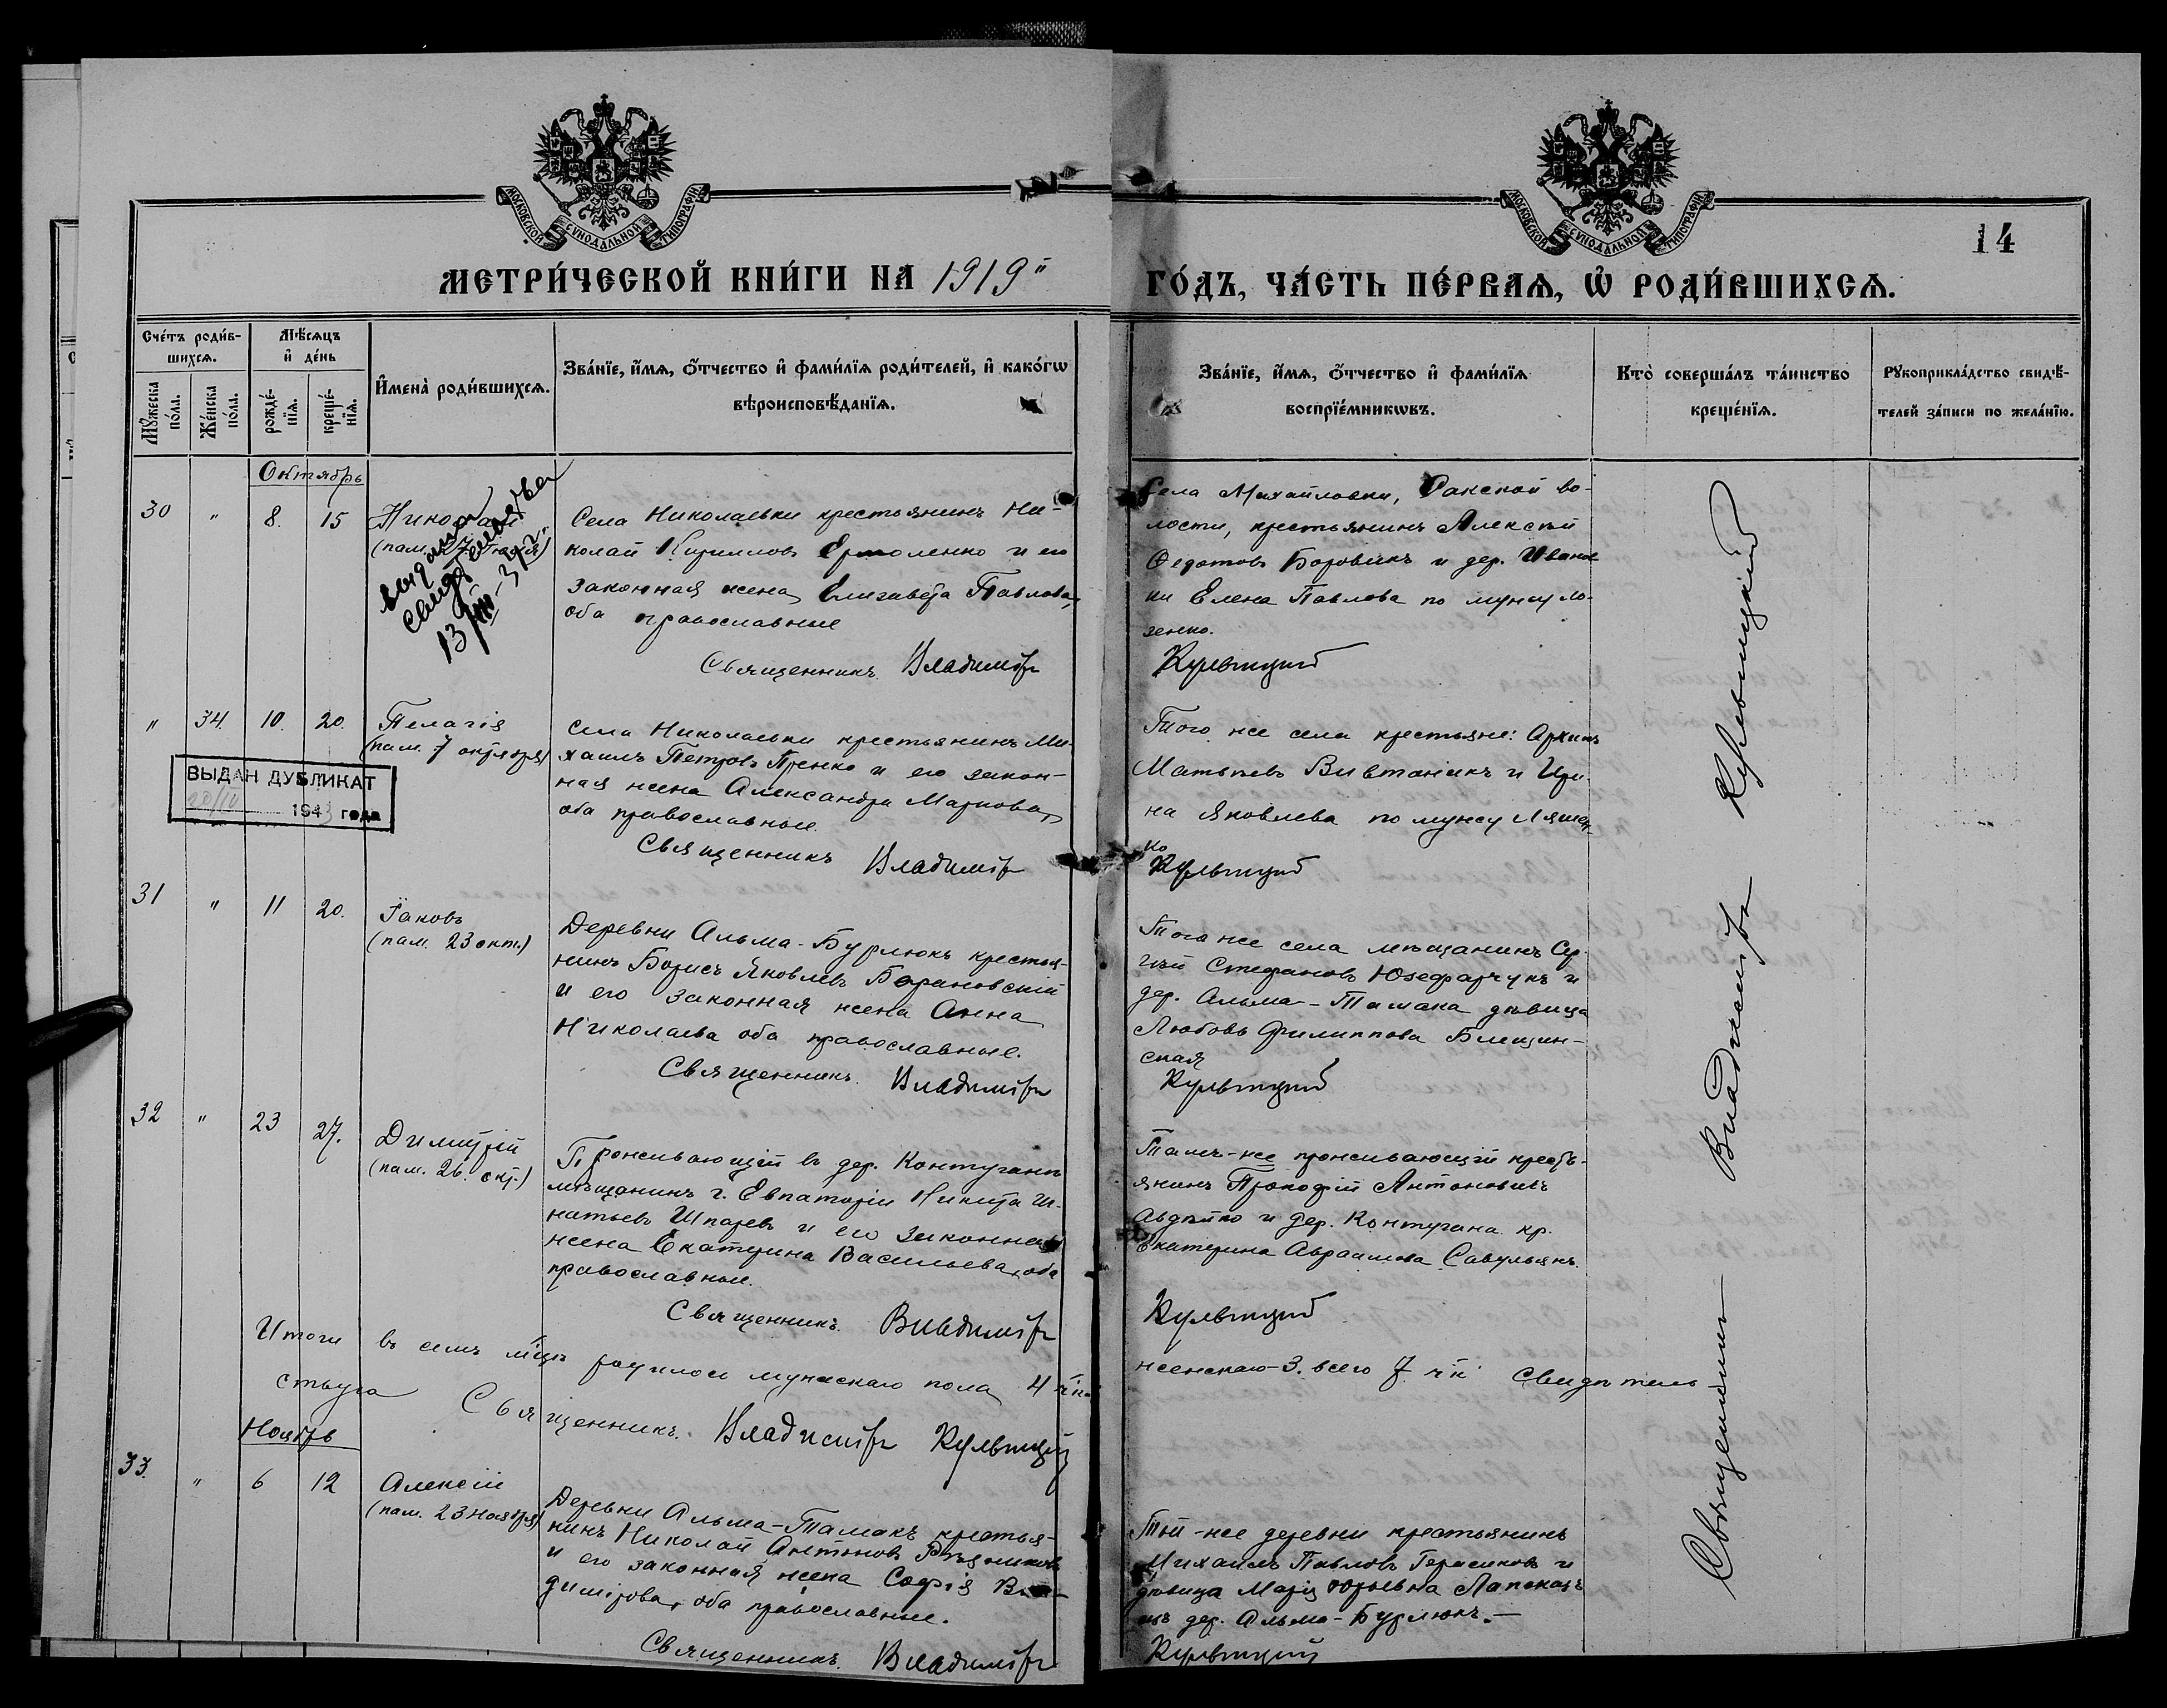 МОСКОВСКОЙ СѴНОДАЛЬНОЙ ТИПОГРАФІИ
МОСКОВСКОЙ СѴНОДАЛЬНОЙ ТИПОГРАФІИ
14
МЕТРИ́ЧЕСКОЙ КНИ́ГИ НА 1919й ГО́ДЪ, ЧА́СТЬ ПЕ́РВАѦ, Ѡ РОДИ́ВШИХСѦ.
Сче́тъ роди́в-
шихсѧ.
Мꙋ́жеска
по́ла.
Же́нска
по́ла.
Мѣ́сѧцъ
и҆ де́нь
рожде́-
нїѧ.
креще́-
нїѧ.
И҆мена̀ роди́вшихсѧ.
Зва́нїе, и҆́мѧ, ѻ҆́тчество и҆ фами́лїѧ роди́телей, и҆ како́гѡ
вѣроисповѣ́данїѧ.
Зва́нїе, и҆́мѧ, ѻ҆́тчество и҆ фами́лїѧ
воспрїе́мникѡвъ.
Кто̀ соверша́лъ та́инство
креще́нїѧ.
Рꙋкоприкла́дство свидѣ́-
телей за́писи по жела́нїю.
Октябрь
30 " 8. 15 Николай
(пам. 27
выдано
свидетельства
13
Села Николаевки крестьянинъ Ни-
колай Кирилловъ Ермоленко и его
законная жена Елизавета Павлова,
оба православные
Священникъ Владиміръ
Села Михайловки, Сакской во-
лости, крестьянинъ Алексѣй
Ѳедотовъ Боровикъ и дер. Иванов
ки Елена Павлова по мужу Ло-
зенко.
Кульвицкій
" 34. 10. 20. Пелагія
(пам. 7 октября)
ВЫДАН ДУБЛИКАТ
20/IV 1943 года
Села Николаевки крестьянинъ Ми-
хаилъ Петровъ Пренко и его закон-
ная жена Александра Маркова,
оба православные.
Священникъ Владиміръ
Того же села крестьяне: Архипъ
Матвѣевъ Вивтоникъ и Ири-
на Яковлева по мужу Ляшен-
ко
Кульвицкій
31 " 11 20. Іаковъ
(пам. 23 окт.)
Деревни Альма-Бурлюкъ крестья-
нинъ Борисъ Яковлевъ Барановскій
и его законная жена Анна
Николаева оба православные.
Священникъ. Владиміръ
Того же села мѣщанинъ Сер-
гѣй Стефановъ Юзефарчукъ и
дер. Альма-Тамака дѣвица
Любовь Филиппова Блещин-
ская
Кульвицкій
32 " 23 27. Димитрій
(пам. 26. окт.)
Проживающій въ дер. Контуганѣ
мѣщанинъ г. Евпаторіи Никита Иг-
натьевъ Шпаревъ и его законная
жена Екатерина Васильева, оба
православные.
Священникъ. Владиміръ
Тамъ-же проживающій кресть-
янинъ Прокофій Антоновичъ
Авдѣйко и дер. Контугана кр.
Екатерина Авраамова Савульякъ.
Кульвицкій
Итого въ семъ м-цѣ родилось мужескаго пола 4 ч-к. женскаго-3. всего 7 ч-к. Свидѣтель-
ствую Священникъ. Владиміръ Кульвицкій
Ноябрь
33. " 6 12 Алексій
(пам. 23 ноября)
Деревни Альма-Тамакъ крестья-
нинъ Николай Антоновъ Рѣзниковъ
и его законная жена Софія Вла-
димірова, оба православные.
Священникъ. Владиміръ
Той-же деревни крестьянинъ
Михаилъ Павловъ Герасимовъ и
дѣвица Марія Юрьевна Лапсказъ
изъ дер. Альма-Бурлюкъ.
Кульвицкій
Священникъ Владиміръ Кульвицкій